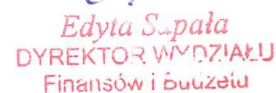 Edyta Sapała
DYREKTOR WYDZIAŁU
Finansów i Budżetu